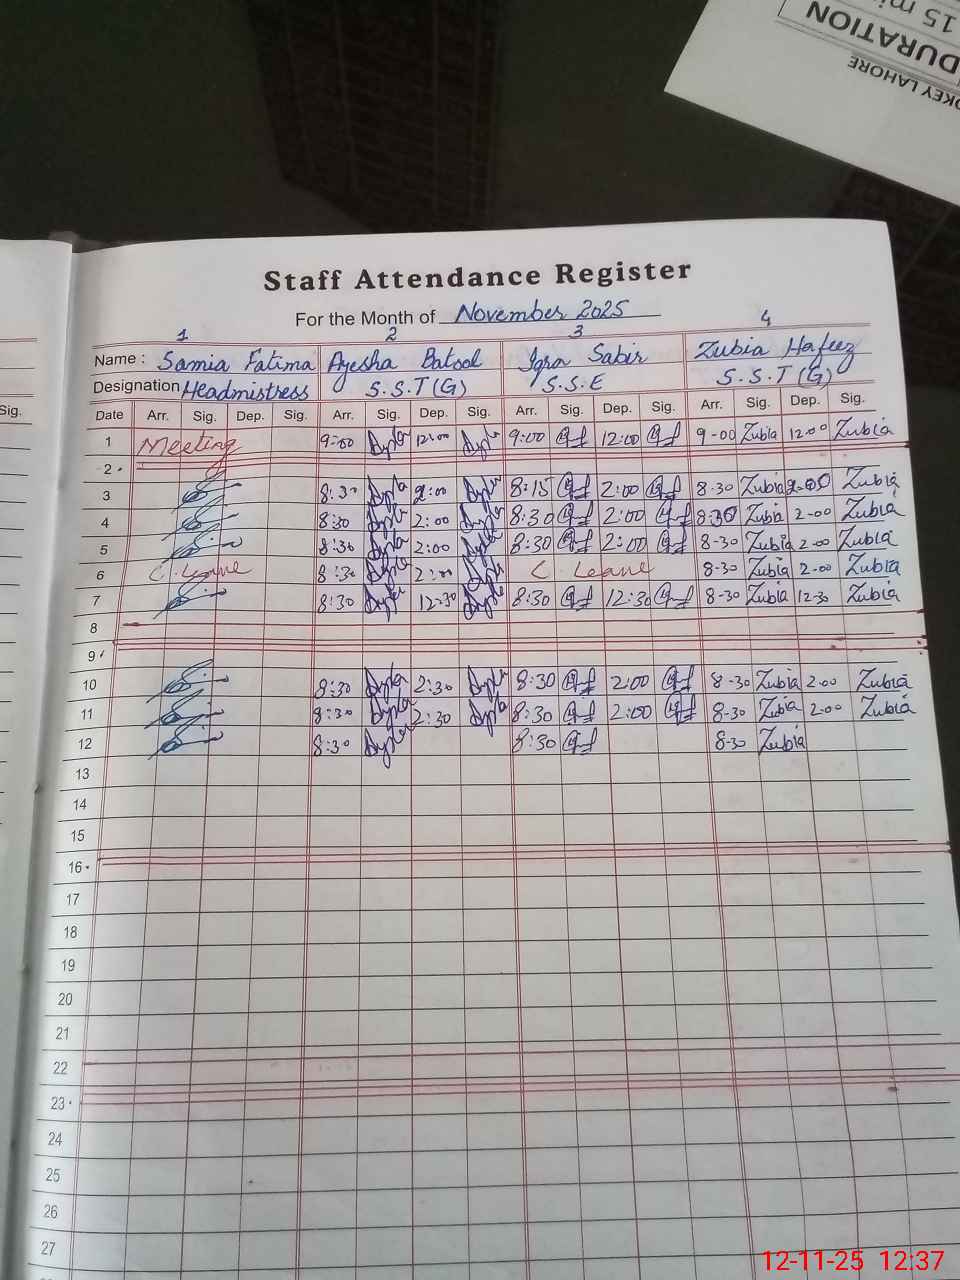 15 mi
DURATION
OKEY LAHORE
Staff Attendance Register
For the Month of November 2025
1 2 3 4
Name : Samia Fatima Ayesha Batool Iqra Sabir Zubia Hafeez
Designation Headmistress S.S.T (G) S.S.E S.S.T (G)
Sig.
Date Arr. Sig. Dep. Sig. Arr. Sig. Dep. Sig. Arr. Sig. Dep. Sig. Arr. Sig. Dep. Sig.
1 Meeting 9:00 12:00 9:00 12:00 9-00 Zubia 12.00 Zubia
2
3 8:30 2:00 8:15 2:00 8-30 Zubia 2-00 Zubia
4 8:30 2:00 8:30 2:00 8-30 Zubia 2-00 Zubia
5 8:30 2:00 8:30 2:00 8-30 Zubia 2-00 Zubia
6 C. Leave 8:30 2:00 C. Leave 8-30 Zubia 2-00 Zubia
7 8:30 12-30 8:30 12:30 8-30 Zubia 12-30 Zubia
8
9
10 8:30 2:30 8:30 2:00 8-30 Zubia 2-00 Zubia
11 8:30 2:30 8:30 2:00 8-30 Zubia 2-00 Zubia
12 8:30 8:30 8-30 Zubia
13
14
15
16
17
18
19
20
21
22
23
24
25
26
27
12-11-25 12:37